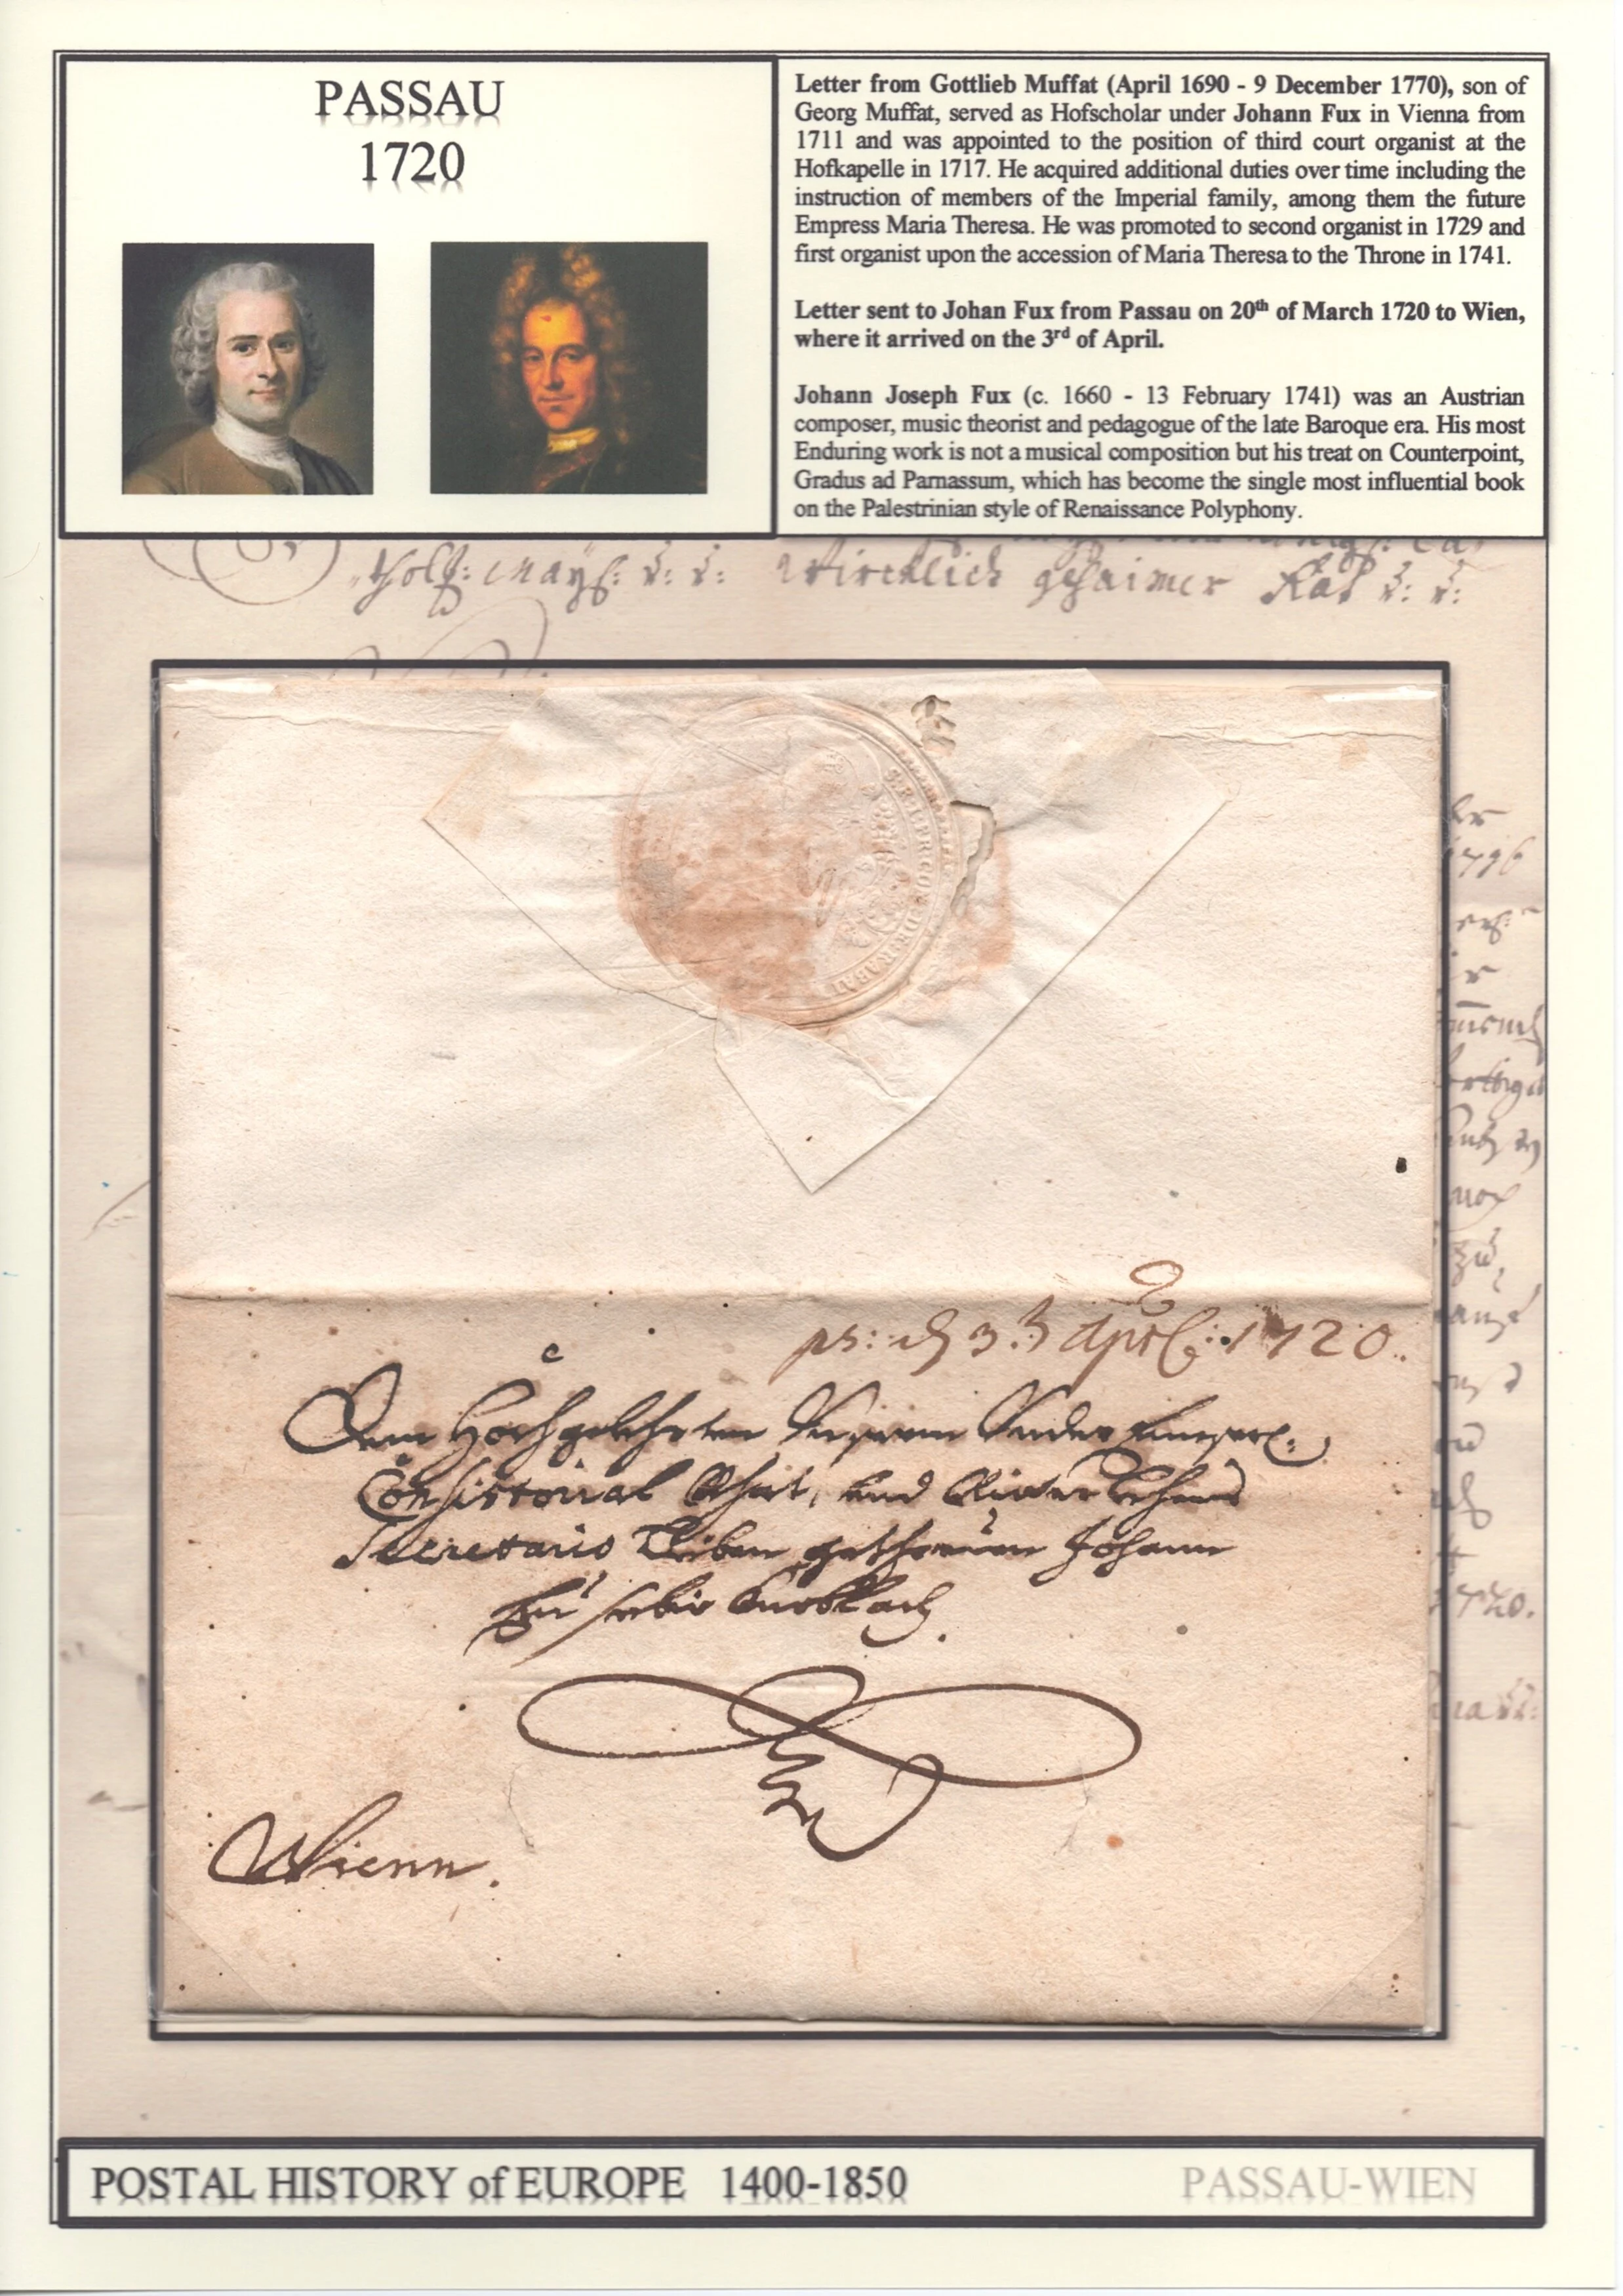 PASSAU
1720
Letter from Gottlieb Muffat (April 1690 - 9 December 1770), son of
Georg Muffat, served as Hofscholar under Johann Fux in Vienna from
1711 and was appointed to the position of third court organist at the
Hofkapelle in 1717. He acquired additional duties over time including the
instruction of members of the Imperial family, among them the future
Empress Maria Theresa. He was promoted to second organist in 1729 and
first organist upon the accession of Maria Theresa to the Throne in 1741.
Letter sent to Johan Fux from Passau on 20th of March 1720 to Wien,
where it arrived on the 3rd of April.
Johann Joseph Fux (c. 1660 - 13 February 1741) was an Austrian
composer, music theorist and pedagogue of the late Baroque era. His most
Enduring work is not a musical composition but his treat on Counterpoint,
Gradus ad Parnassum, which has become the single most influential book
on the Palestrinian style of Renaissance Polyphony.
Würcklich gehaimer Rat
1720.
Dem Hochgelehrten Unserem
Consistorial Rhat, und Lehens
Secretario Lieben gethreuen Johann
Eusebio Knoblach.
Wienn.
POSTAL HISTORY of EUROPE 1400-1850
PASSAU-WIEN